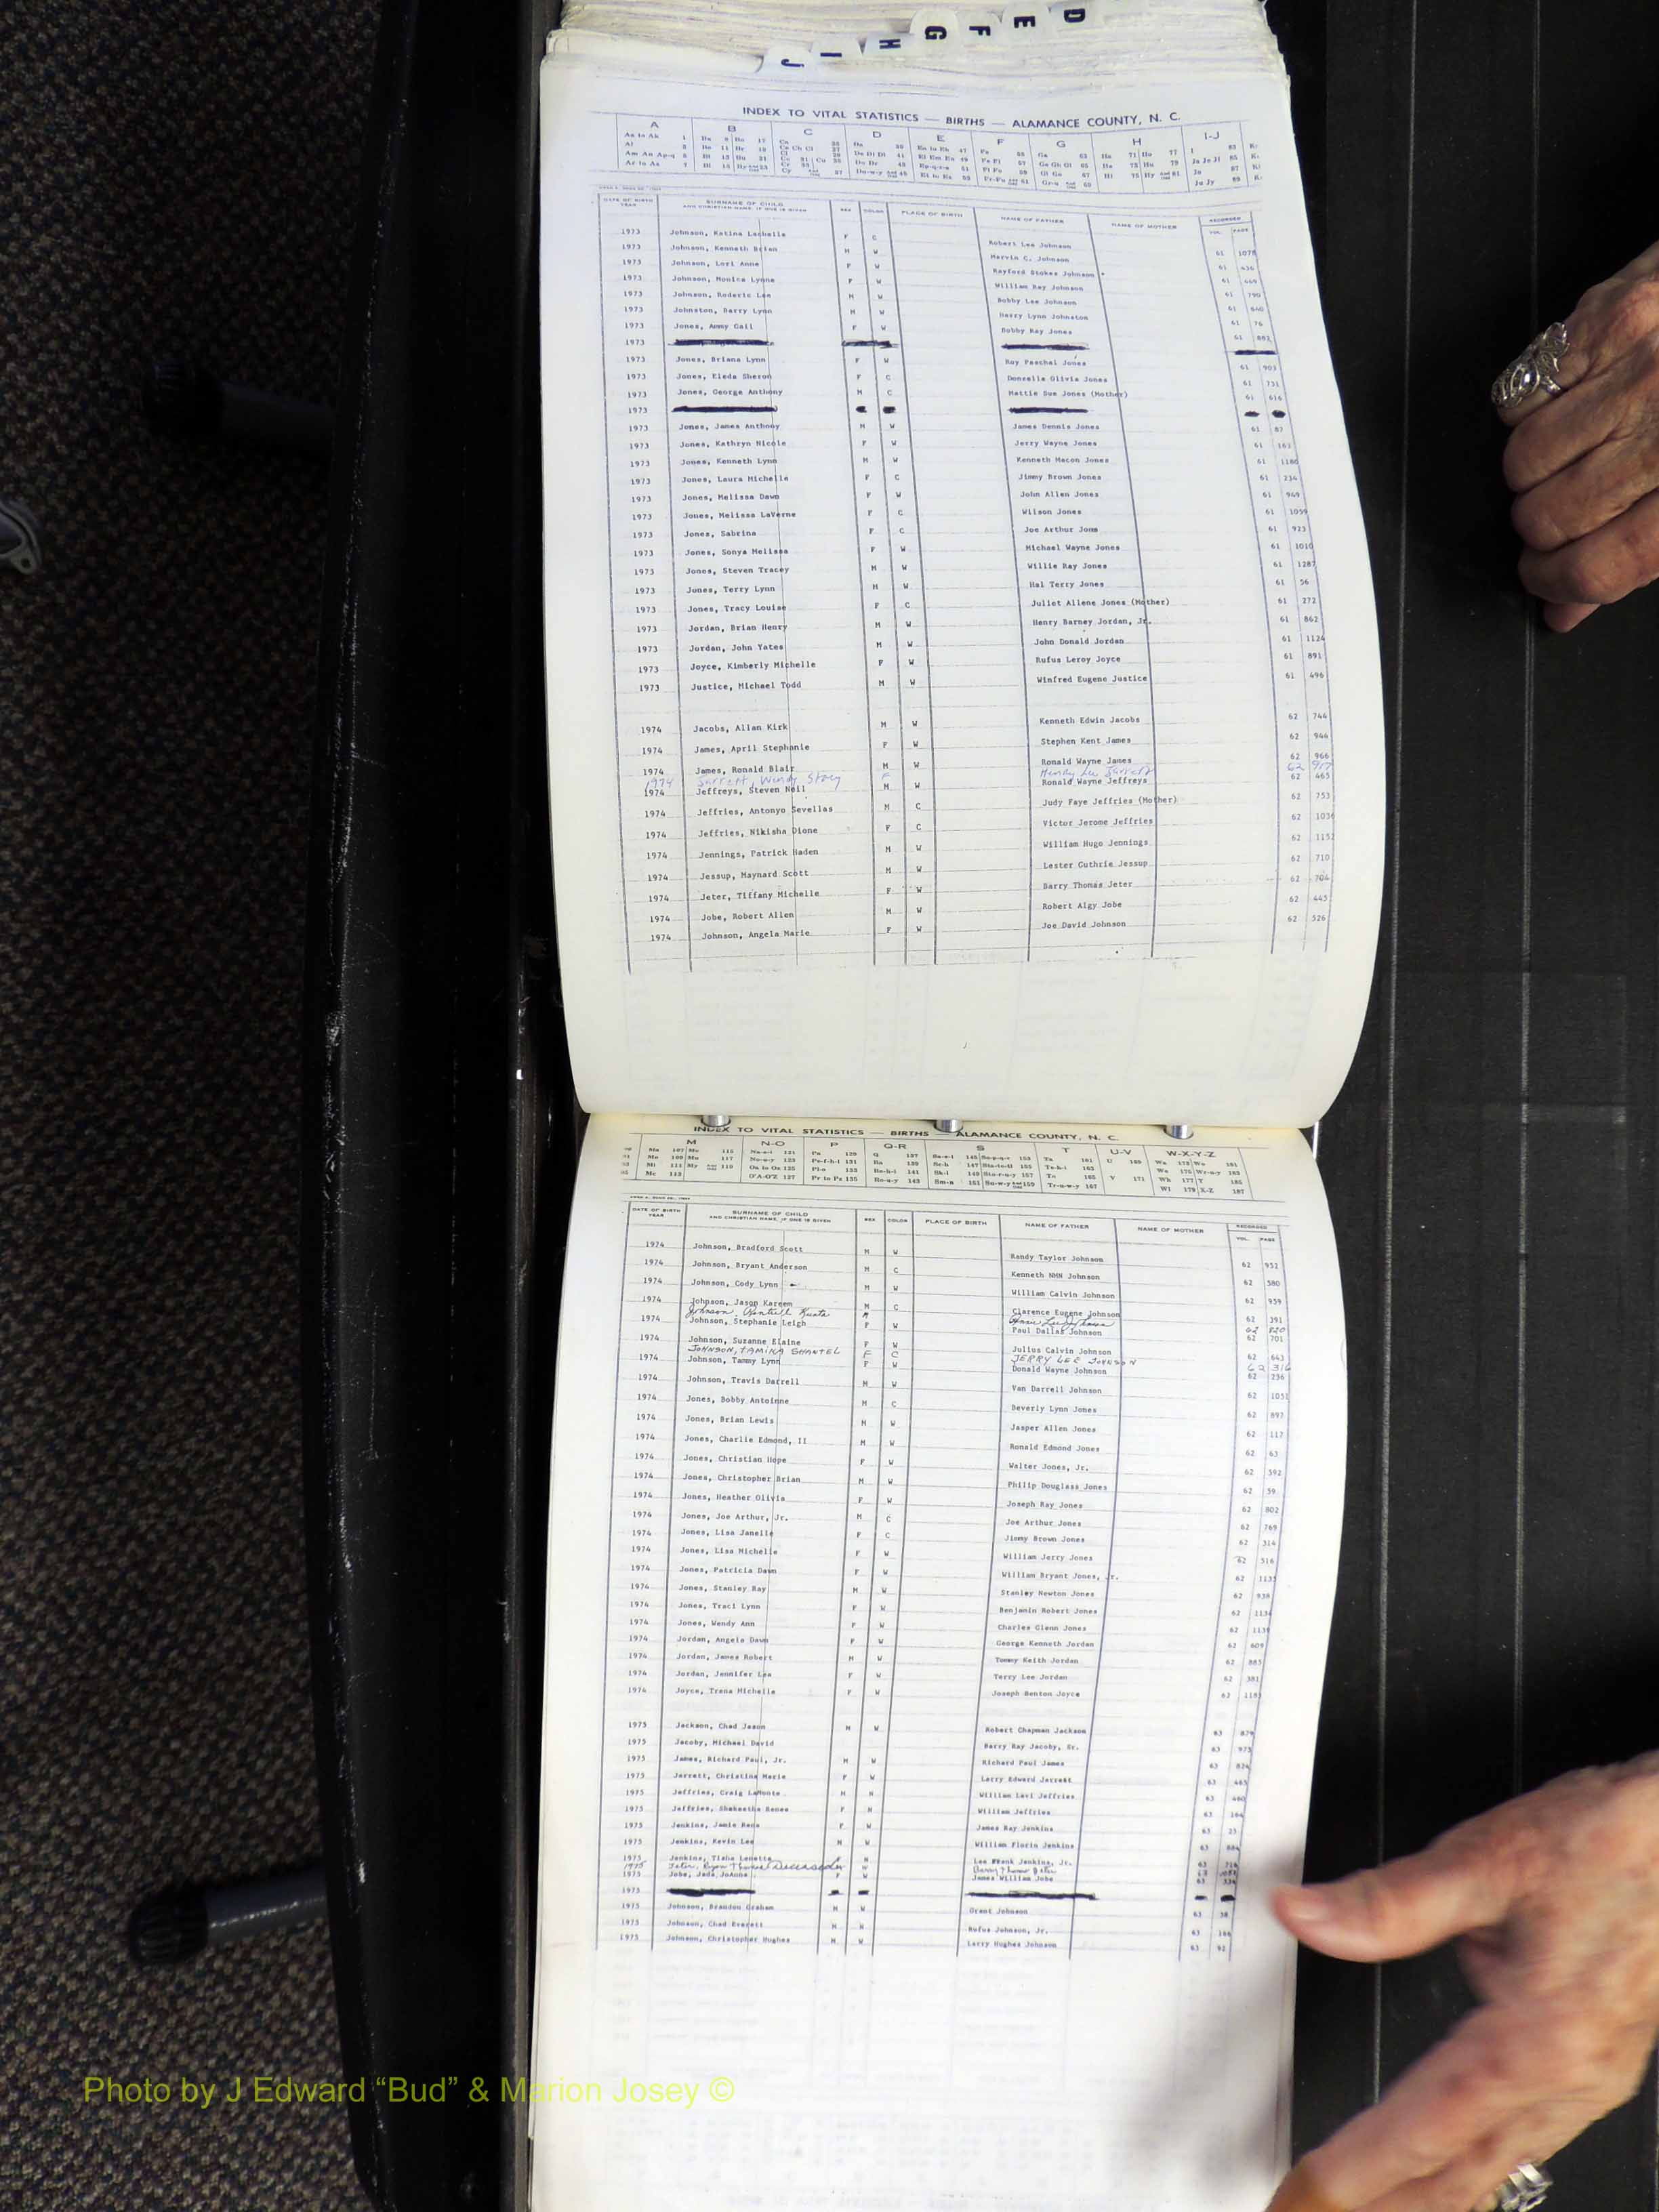 D
E
F
G
H
I
J
INDEX TO VITAL STATISTICS — BIRTHS — ALAMANCE COUNTY, N. C.
A B C D E F G H I-J
DATE OF BIRTH YEAR SURNAME OF CHILD AND CHRISTIAN NAME, IF ONE IS GIVEN SEX COLOR PLACE OF BIRTH NAME OF FATHER NAME OF MOTHER RECORDED VOL. PAGE
1973 Johnson, Katina Lashelle F C Robert Lee Johnson 61 1078
1973 Johnson, Kenneth Brian M W Marvin C. Johnson 61 436
1973 Johnson, Lori Anne F W Rayford Stokes Johnson 61 469
1973 Johnson, Monica Lynne F W William Ray Johnson 61 790
1973 Johnson, Roderic Lee M W Bobby Lee Johnson 61 840
1973 Johnston, Barry Lynn M W Harry Lynn Johnston 61 76
1973 Jones, Ammy Gail F W Bobby Ray Jones 61 883
1973
1973 Jones, Briana Lynn F W Roy Paschal Jones 61 903
1973 Jones, Eleda Sheron F C Donzella Olivia Jones 61 731
1973 Jones, George Anthony M C Mattie Sue Jones (Mother) 61 616
1973
1973 Jones, James Anthony M W James Dennis Jones 61 87
1973 Jones, Kathryn Nicole F W Jerry Wayne Jones 61 163
1973 Jones, Kenneth Lynn M W Kenneth Macon Jones 61 1180
1973 Jones, Laura Michelle F C Jimmy Brown Jones 61 234
1973 Jones, Melissa Dawn F W John Allen Jones 61 949
1973 Jones, Melissa LaVerne F C Wilson Jones 61 1059
1973 Jones, Sabrina F C Joe Arthur Jones 61 923
1973 Jones, Sonya Melissa F W Michael Wayne Jones 61 1010
1973 Jones, Steven Tracey M W Willie Ray Jones 61 1287
1973 Jones, Terry Lynn M W Hal Terry Jones 61 56
1973 Jones, Tracy Louise F C Juliet Allene Jones (Mother) 61 272
1973 Jordan, Brian Henry M W Henry Barney Jordan, Jr. 61 862
1973 Jordan, John Yates M W John Donald Jordan 61 1124
1973 Joyce, Kimberly Michelle F W Rufus Leroy Joyce 61 891
1973 Justice, Michael Todd M W Winfred Eugene Justice 61 496
1974 Jacobs, Allan Kirk M W Kenneth Edwin Jacobs 62 744
1974 James, April Stephanie F W Stephen Kent James 62 944
1974 James, Ronald Blair M W Ronald Wayne James 62 966
1974 Jarrett, Wendy Stacy F Henry Lee Jarrett 62 917
1974 Jeffreys, Steven Neil M W Ronald Wayne Jeffreys 62 465
1974 Jeffries, Antonyo Sevellas M C Judy Faye Jeffries (Mother) 62 753
1974 Jeffries, Nikisha Dione F C Victor Jerome Jeffries 62 1036
1974 Jennings, Patrick Haden M W William Hugo Jennings 62 1152
1974 Jessup, Maynard Scott M W Lester Guthrie Jessup 62 710
1974 Jeter, Tiffany Michelle F W Barry Thomas Jeter 62 704
1974 Jobe, Robert Allen M W Robert Algy Jobe 62 445
1974 Johnson, Angela Marie F W Joe David Johnson 62 526
INDEX TO VITAL STATISTICS — BIRTHS — ALAMANCE COUNTY, N. C.
M N-O P Q-R S T U-V W-X-Y-Z
DATE OF BIRTH YEAR SURNAME OF CHILD AND CHRISTIAN NAME, IF ONE IS GIVEN SEX COLOR PLACE OF BIRTH NAME OF FATHER NAME OF MOTHER RECORDED VOL. PAGE
1974 Johnson, Bradford Scott M W Randy Taylor Johnson 62 952
1974 Johnson, Bryant Anderson M C Kenneth NMN Johnson 62 580
1974 Johnson, Cody Lynn M W William Calvin Johnson 62 959
1974 Johnson, Jason Kareem M C Clarence Eugene Johnson 62 391
Johnson, Kunta M 62 820
1974 Johnson, Stephanie Leigh F W Paul Dallas Johnson 62 701
1974 Johnson, Suzanne Elaine F W Julius Calvin Johnson 62 643
JOHNSON, TAMIKA SHANTEL F C JERRY LEE JOHNSON 62 316
1974 Johnson, Tammy Lynn F W Donald Wayne Johnson 62 236
1974 Johnson, Travis Darrell M W Van Darrell Johnson 62 1051
1974 Jones, Bobby Antoinne M C Beverly Lynn Jones 62 897
1974 Jones, Brian Lewis M W Jasper Allen Jones 62 117
1974 Jones, Charlie Edmond, II M W Ronald Edmond Jones 62 63
1974 Jones, Christian Hope F W Walter Jones, Jr. 62 392
1974 Jones, Christopher Brian M W Philip Douglass Jones 62 59
1974 Jones, Heather Olivia F W Joseph Ray Jones 62 802
1974 Jones, Joe Arthur, Jr. M C Joe Arthur Jones 62 769
1974 Jones, Lisa Janelle F C Jimmy Brown Jones 62 314
1974 Jones, Lisa Michelle F W William Jerry Jones 62 516
1974 Jones, Patricia Dawn F W William Bryant Jones, Jr. 62 1135
1974 Jones, Stanley Ray M W Stanley Newton Jones 62 938
1974 Jones, Traci Lynn F W Benjamin Robert Jones 62 1134
1974 Jones, Wendy Ann F W Charles Glenn Jones 62 1139
1974 Jordan, Angela Dawn F W George Kenneth Jordan 62 609
1974 Jordan, James Robert M W Tommy Keith Jordan 62 883
1974 Jordan, Jennifer Lea F W Terry Lee Jordan 62 381
1974 Joyce, Trena Michelle F W Joseph Benton Joyce 62 1185
1975 Jackson, Chad Jason M W Robert Chapman Jackson 63 879
1975 Jacoby, Michael David Barry Ray Jacoby, Sr. 63 973
1975 James, Richard Paul, Jr. M W Richard Paul James 63 824
1975 Jarrett, Christina Marie F W Larry Edward Jarrett 63 465
1975 Jeffries, Craig LaMonte M N William Levi Jeffries 63 460
1975 Jeffries, Shakeetha Renee F N William Jeffries 63 164
1975 Jenkins, Jamie Rena F W James Ray Jenkins 63 25
1975 Jenkins, Kevin Lee M W William Florin Jenkins 63 684
1975 Jenkins, Tisha Lenette F N Lee Frank Jenkins, Jr. 63 716
1975 Jeter, Ryan Thomas Deceased Barry Thomas Jeter 63
1975 Jobe, Jada JoAnne F W James William Jobe 63 334
1975
1975 Johnson, Brandon Graham M W Grant Johnson 63 38
1975 Johnson, Chad Everett M W Rufus Johnson, Jr. 63 166
1975 Johnson, Christopher Hughes M W Larry Hughes Johnson 63 92
Photo by J Edward “Bud” & Marion Josey ©